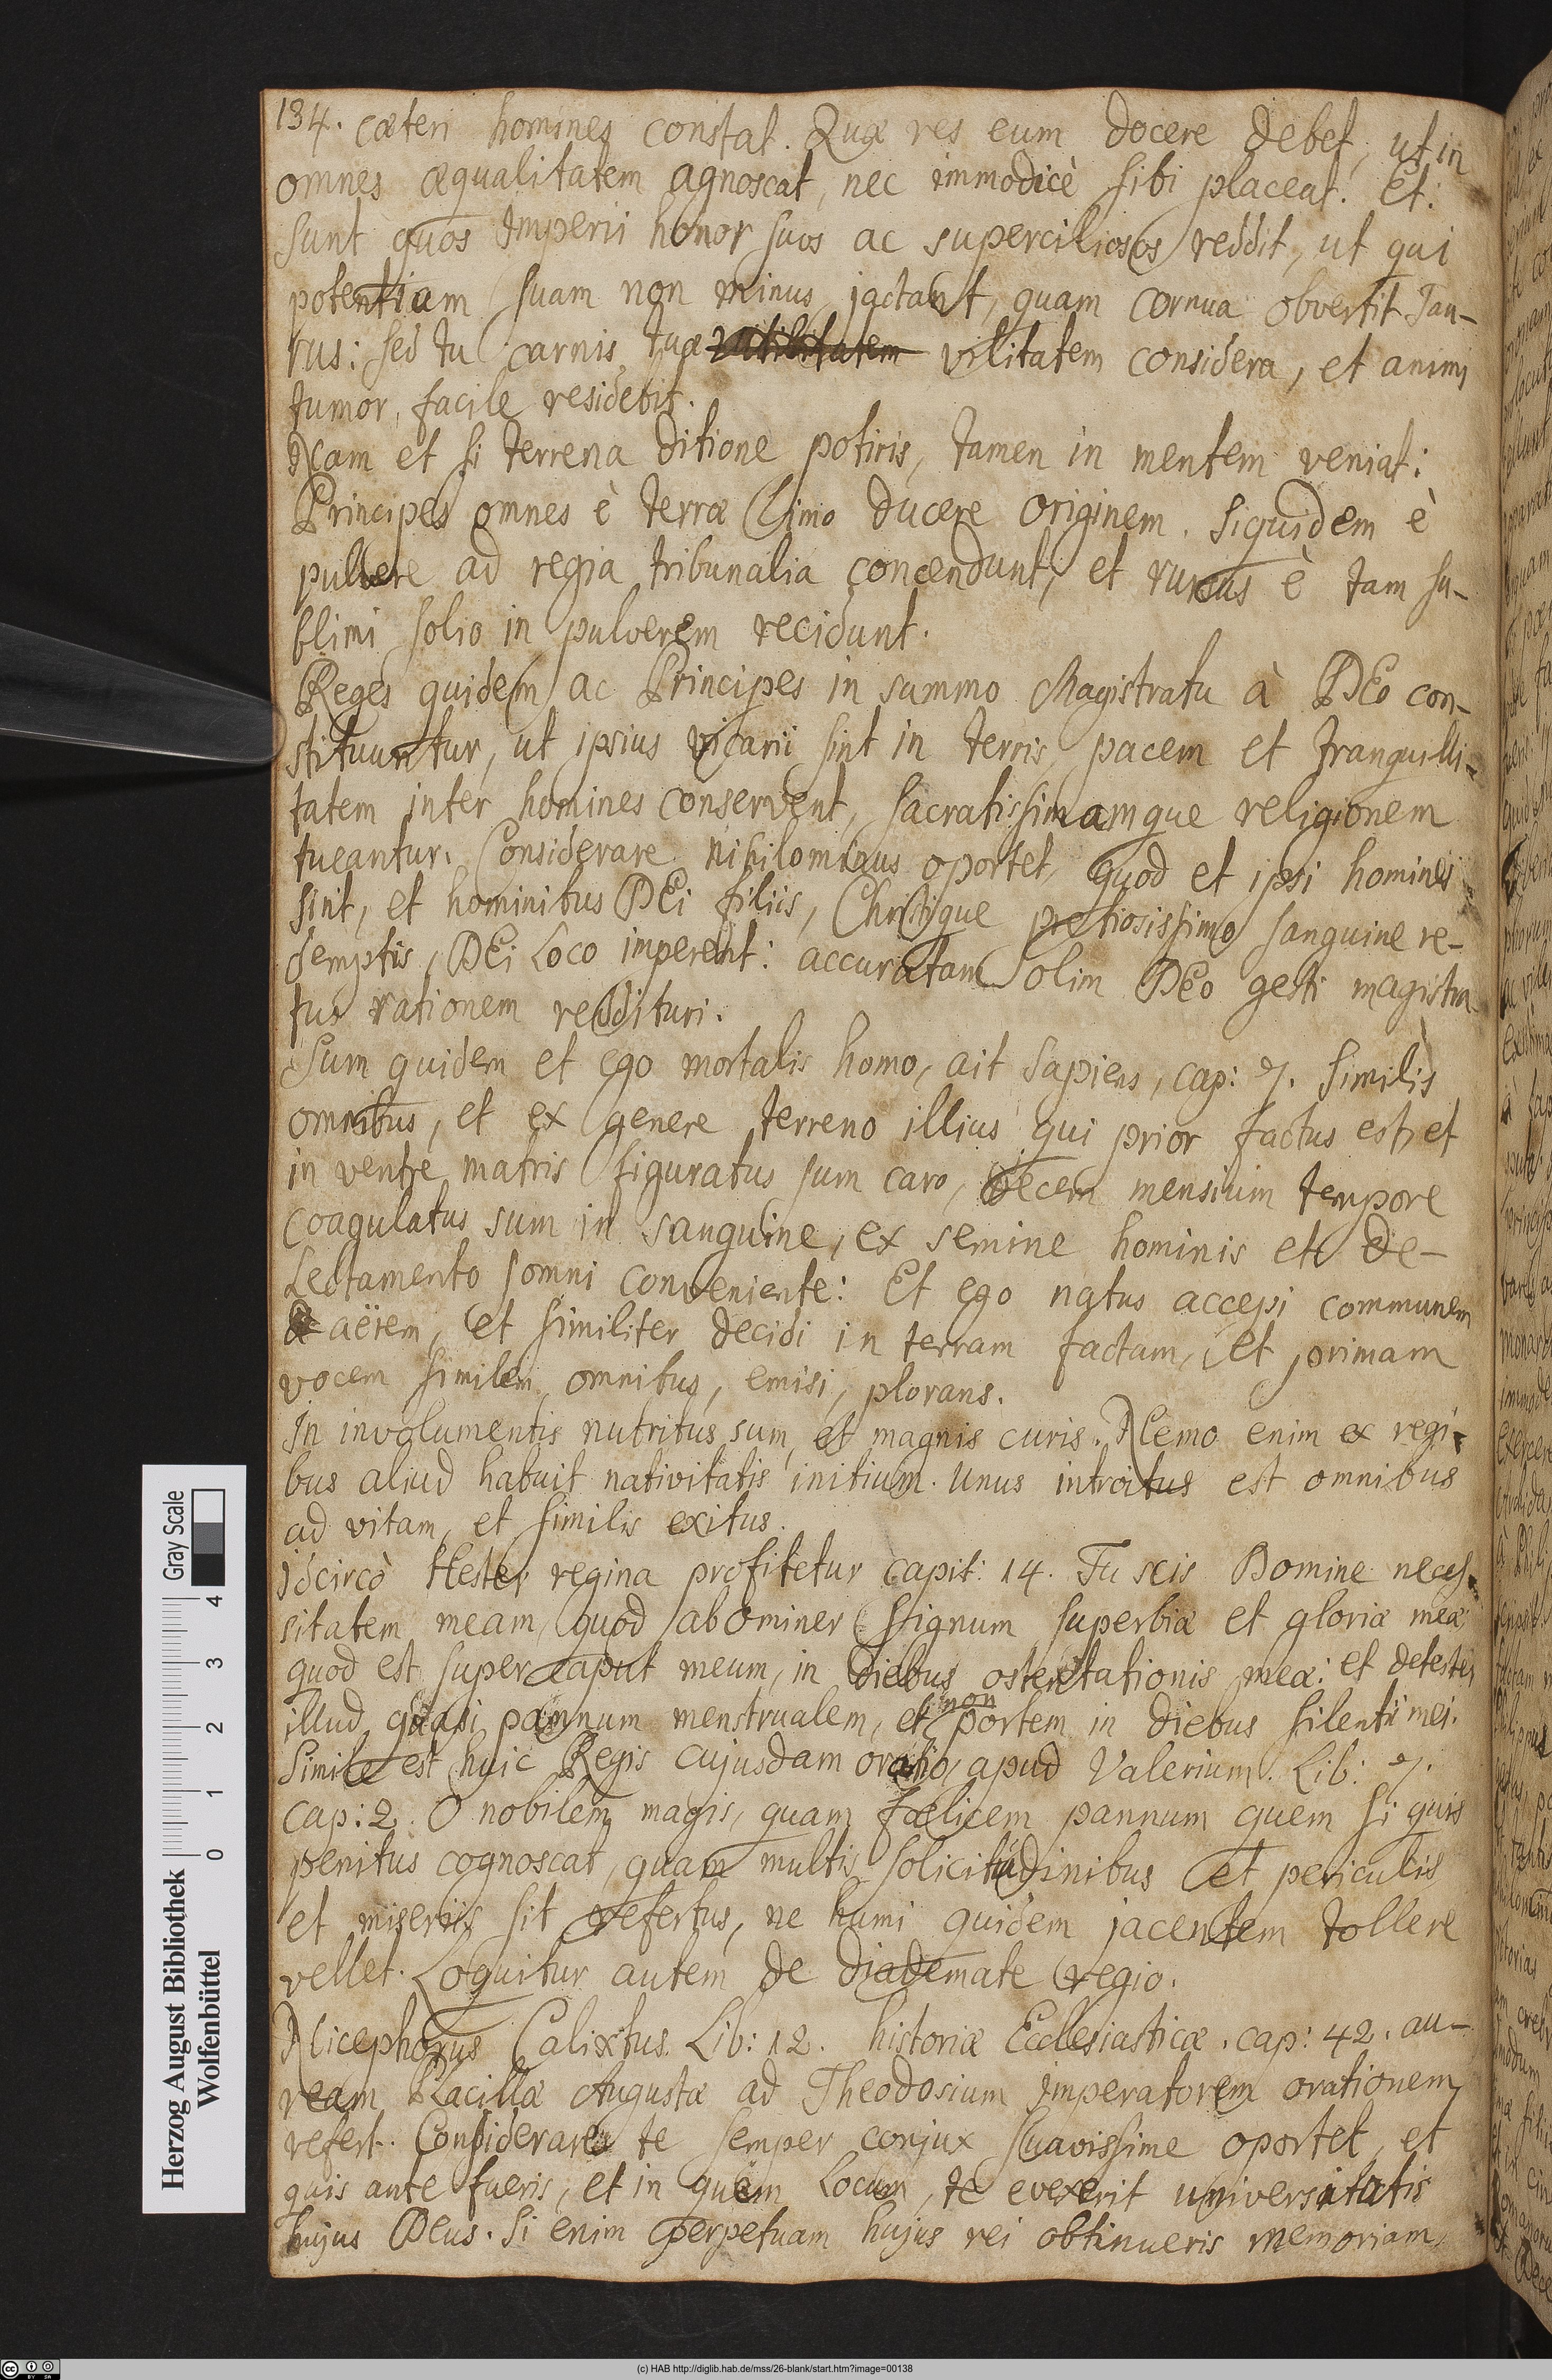 134. cæteri homines constat. Quæ res eum docere debet, ut in
omnes æqualitatem agnoscat, nec immodicè sibi placeat. Et:
sunt quos Imperii honor suos ac superciliosos reddit, ut qui
potentiam suam non minus jactant, quam cornua obvertit Tau-
rus: sed tu carnis tuæ vilitatem considera, et animi
tumor facile residebit.
Nam et si terrena ditione potiris, tamen in mentem veniat:
Principes omnes è terræ limo ducere originem. siquidem è
pulvere ad regia tribunalia concendunt, et rursus è tam su-
blimi solio in pulverem recidunt.
Reges quidem ac Principes in summo Magistratu à DEo con-
stituuntur, ut ipsius vicarii sint in terris, pacem et tranquilli-
tatem inter homines conservent, sacratissimamque religionem
tueantur. Considerare nihilominus oportet, quod et ipsi homines
sint, et hominibus DEi filiis, Christique pretiosissimo sanguine re-
demptis, DEi Loco imperent: accuratam olim DEo gesti magistra-
tus rationem reddituri.
Sum quidem et ego mortalis homo, ait Sapiens, cap: 7. similis
omnibus, et ex genere terreno illius qui prior factus est, et
in ventre matris figuratus sum caro, decem mensium tempore
coagulatus sum in sanguine, ex semine hominis et de-
Lectamento somni conveniente: Et ego natus accepi communem
aërem, et similiter decidi in terram factam, et primam
vocem similem omnibus, emisi, plorans.
In involumentis nutritus sum, et magnis curis. Nemo enim ex regi-
bus aliud habuit nativitatis initium. Unus introitus est omnibus
ad vitam, et similis exitus.
Idcircò Hester regina profitetur capit: 14. Tu scis Domine neces-
sitatem meam, quod abominer signum superbiæ et gloriæ meæ,
quod est super caput meum, in diebus ostentationis meæ: et detester
illud quasi pannum menstrualem, et non portem in diebus silentii mei.
Simile est huic Regis cujusdam oratio, apud Valerium. Lib: 7.
cap: 2. O nobilem magis, quam fælicem pannum quem si quis
penitus cognoscat, quam multis solicitudinibus et periculis,
et miseriis sit refertus, ne humi quidem jacentem tollere
vellet. Loquitur autem de diademate regio.
Nicephorus Calixtus. Lib: 12. historiæ Ecclesiasticæ. cap: 42. au-
ream Placillæ Augustæ ad Theodosium imperatorem orationem
refert. Considerare te semper conjux suavissime oportet, et
quis ante fueris, et in quem Locum, te evexerit universitatis
hujus Deus. Si enim perpetuam hujus rei obtinueris memoriam,
Herzog August Bibliothek
Wolfenbüttel
Gray Scale
0 1 2 3 4
(c) HAB http://diglib.hab.de/mss/26-blank/start.htm?image=00138